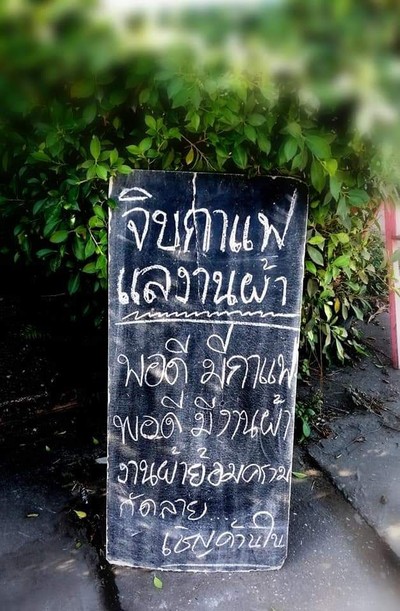 จิบกาแฟ
แลงานผ้า
พอดี มีกาแฟ
พอดี มีงานผ้า
งานผ้าย้อมคราม
กัดลาย...
เชิญด้านใน